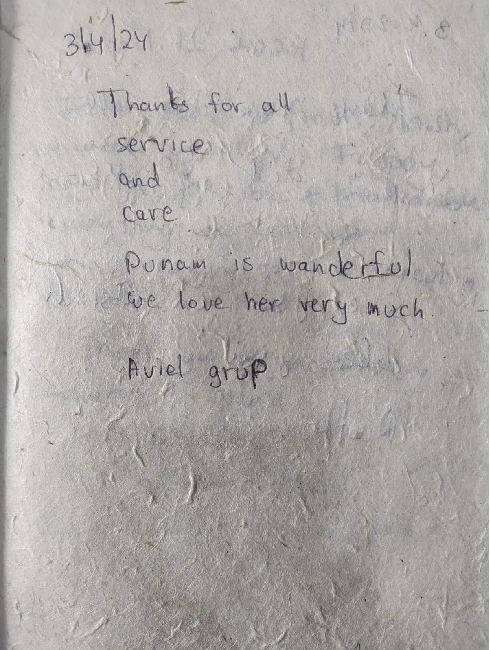 3/4/24
Thanks for all
service
and
care
Punam is wanderful
we love her very much.
Aviel grup